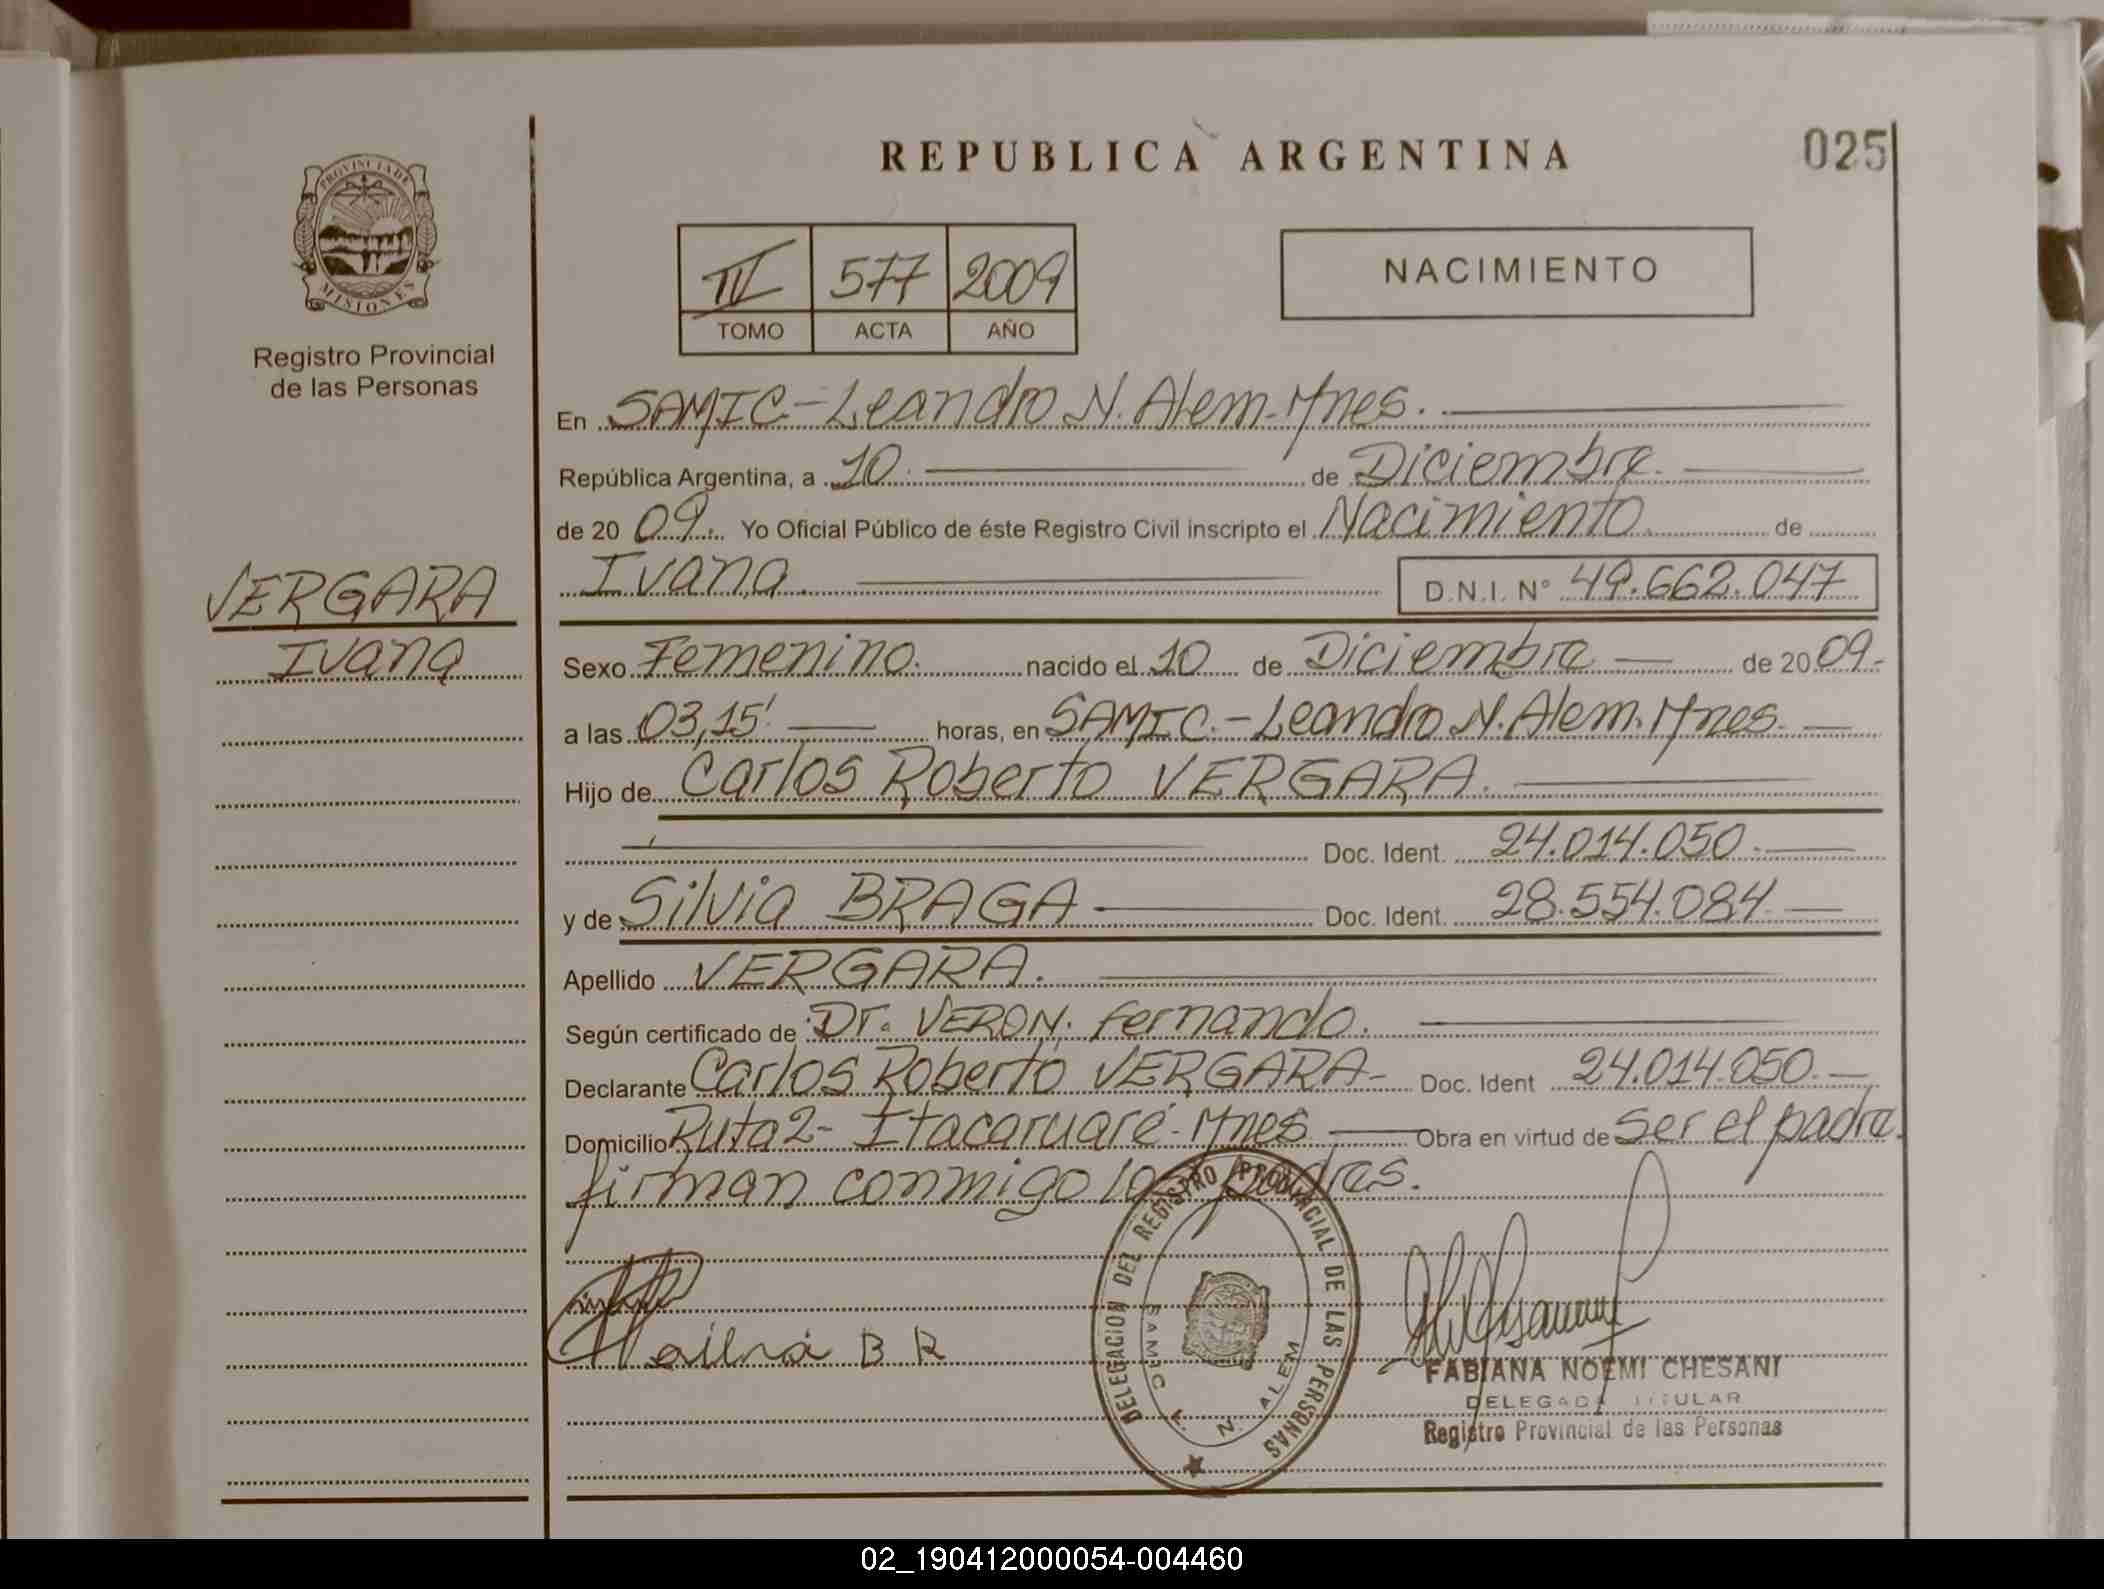 REPUBLICA ARGENTINA
025
PROVINCIA DE
MISIONES
Registro Provincial
de las Personas
IV 577 2009
TOMO ACTA AÑO
NACIMIENTO
En SAMIC-Leandro N. Alem-Mnes.
República Argentina, a 10. de Diciembre.
de 20 09. Yo Oficial Público de éste Registro Civil inscripto el Nacimiento de
Ivana D.N.I. N° 49.662.047
VERGARA
Ivana
Sexo Femenino. nacido el 10 de Diciembre de 20 09.-
a las 03,15' horas, en SAMIC.-Leandro N. Alem. Mnes.
Hijo de Carlos Roberto VERGARA.
Doc. Ident. 24.014.050.
y de Silvia BRAGA Doc. Ident. 28.554.084
Apellido VERGARA.
Según certificado de Dr. VERON. Fernando.
Declarante Carlos Roberto VERGARA- Doc. Ident 24.014.050.
Domicilio Ruta 2- Itacaruaré-Mnes Obra en virtud de ser el padre.
firman conmigo los padres.
DELEGACION DEL REGISTRO PROVINCIAL DE LAS PERSONAS
SAMIC L. N. ALEM
B R
FABIANA NOEMI CHESANI
DELEGADA TITULAR
Registro Provincial de las Personas
02_190412000054-004460